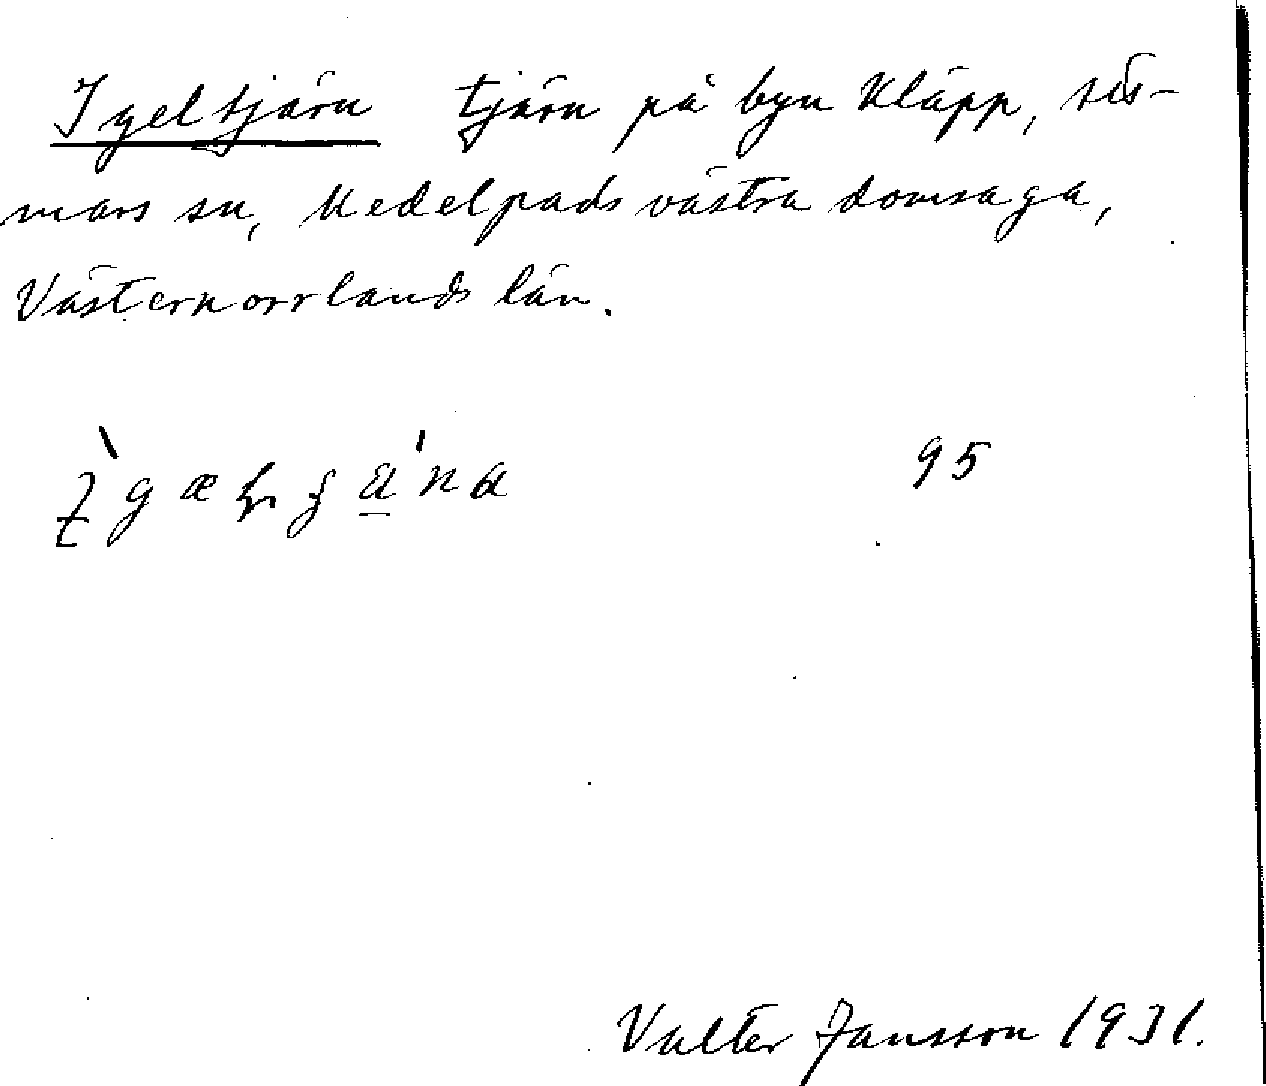 Igeltjärn tjärn på byn Kläpp, Stö-
mars sn, Medelpads västra domsaga,
Västernorrlands län.
95
Valter Jansson 1931.